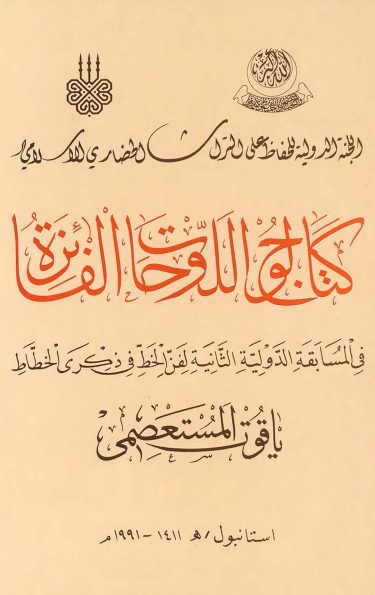 اللجنة الدولية للحفاظ على التراث الحضاري الإسلامي
كتالوج اللوحات الفائزة
في المسابقة الدولية الثانية لفن الخط في ذكرى الخطاط
ياقوت المستعصمي
استانبول / ١٤١١ هـ - ١٩٩١ م